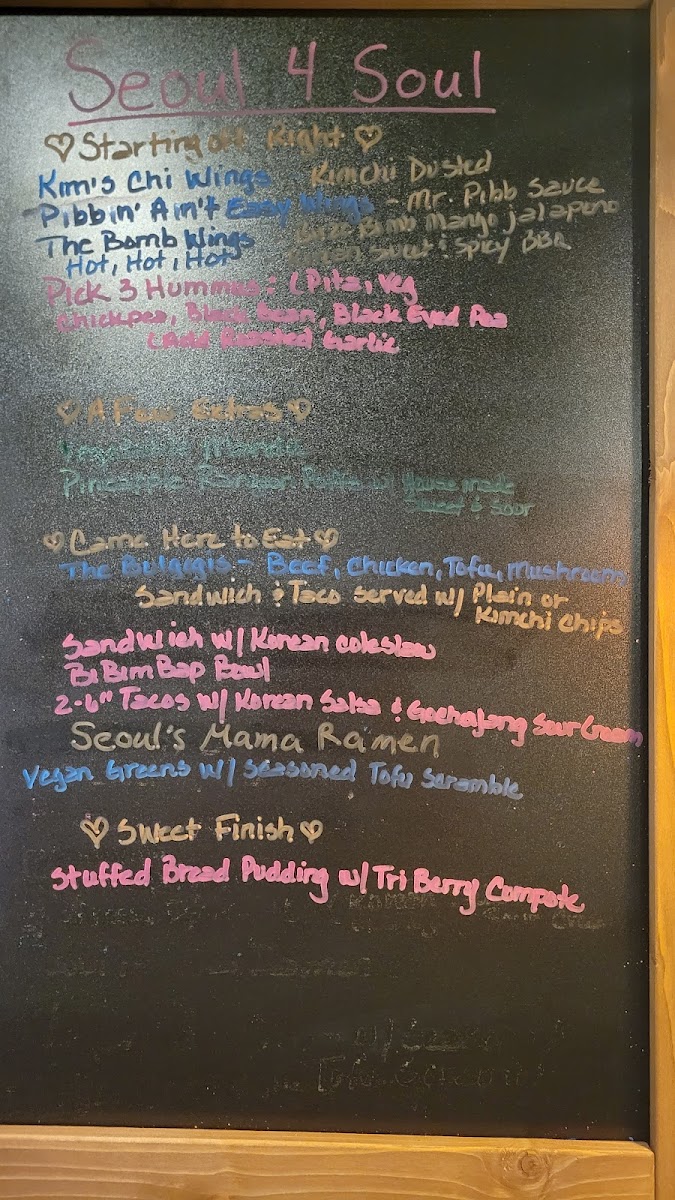 Seoul 4 Soul
Starting off Right
Kim's Chi Wings Kimchi Dusted
Pibbin' Ain't Easy Wings - Mr. Pibb Sauce
The Bomb Wings Bomb Mango jalapeno
Hot, Hot, Hot Sweet & Spicy BBQ
Pick 3 Hummus: (Pita, Veg
Chickpea, Black Bean, Black Eyed Pea
(Add Roasted Garlic
A Few Extras
Pineapple Rangoon w/ House made
Sweet & Sour
Came Here to Eat
The Bulgogis - Beef, Chicken, Tofu, Mushroom
Sandwich & Taco Served w/ Plain or
Kimchi Chips
Sandwich w/ Korean coleslaw
BiBimBap Bowl
2-6" Tacos w/ Korean Salsa & Gochajang Sour Cream
Seoul's Mama Ramen
Vegan Greens w/ Seasoned Tofu Scramble
Sweet Finish
Stuffed Bread Pudding w/ Tri Berry Compote